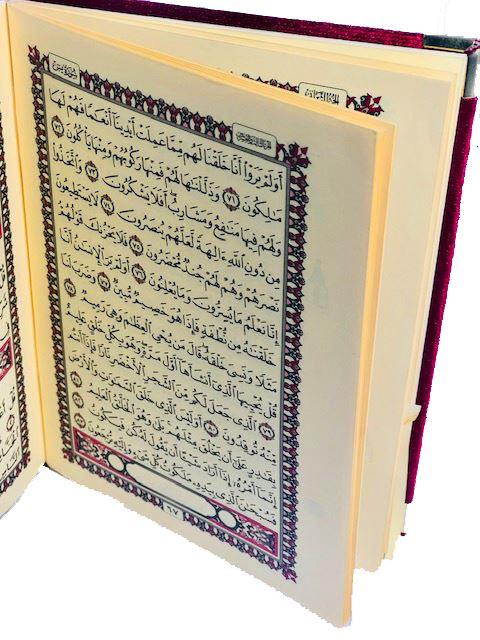 سُورَةُ يسٓ
أَوَلَمْ يَرَوْا۟ أَنَّا خَلَقْنَا لَهُم مِّمَّا عَمِلَتْ أَيْدِينَآ أَنْعَٰمًا فَهُمْ لَهَا
مَٰلِكُونَ ٧١ وَذَلَّلْنَٰهَا لَهُمْ فَمِنْهَا رَكُوبُهُمْ وَمِنْهَا يَأْكُلُونَ ٧٢
وَلَهُمْ فِيهَا مَنَٰفِعُ وَمَشَارِبُ أَفَلَا يَشْكُرُونَ ٧٣ وَٱتَّخَذُوا۟
مِن دُونِ ٱللَّهِ ءَالِهَةً لَّعَلَّهُمْ يُنصَرُونَ ٧٤ لَا يَسْتَطِيعُونَ
نَصْرَهُمْ وَهُمْ لَهُمْ جُندٌ مُّحْضَرُونَ ٧٥ فَلَا يَحْزُنكَ قَوْلُهُمْ
إِنَّا نَعْلَمُ مَا يُسِرُّونَ وَمَا يُعْلِنُونَ ٧٦ أَوَلَمْ يَرَ ٱلْإِنسَٰنُ أَنَّا
خَلَقْنَٰهُ مِن نُّطْفَةٍ فَإِذَا هُوَ خَصِيمٌ مُّبِينٌ ٧٧ وَضَرَبَ لَنَا
مَثَلًا وَنَسِىَ خَلْقَهُۥ قَالَ مَن يُحْىِ ٱلْعِظَٰمَ وَهِىَ رَمِيمٌ ٧٨
قُلْ يُحْيِيهَا ٱلَّذِىٓ أَنشَأَهَآ أَوَّلَ مَرَّةٍ وَهُوَ بِكُلِّ خَلْقٍ عَلِيمٌ ٧٩
ٱلَّذِى جَعَلَ لَكُم مِّنَ ٱلشَّجَرِ ٱلْأَخْضَرِ نَارًا فَإِذَآ أَنتُم
مِّنْهُ تُوقِدُونَ ٨٠ أَوَلَيْسَ ٱلَّذِى خَلَقَ ٱلسَّمَٰوَٰتِ وَٱلْأَرْضَ
بِقَٰدِرٍ عَلَىٰٓ أَن يَخْلُقَ مِثْلَهُم بَلَىٰ وَهُوَ ٱلْخَلَّٰقُ ٱلْعَلِيمُ ٨١
إِنَّمَآ أَمْرُهُۥٓ إِذَآ أَرَادَ شَيْـًٔا أَن يَقُولَ لَهُۥ كُن فَيَكُونُ ٨٢
فَسُبْحَٰنَ ٱلَّذِى بِيَدِهِۦ مَلَكُوتُ كُلِّ شَىْءٍ وَإِلَيْهِ تُرْجَعُونَ
٦٧